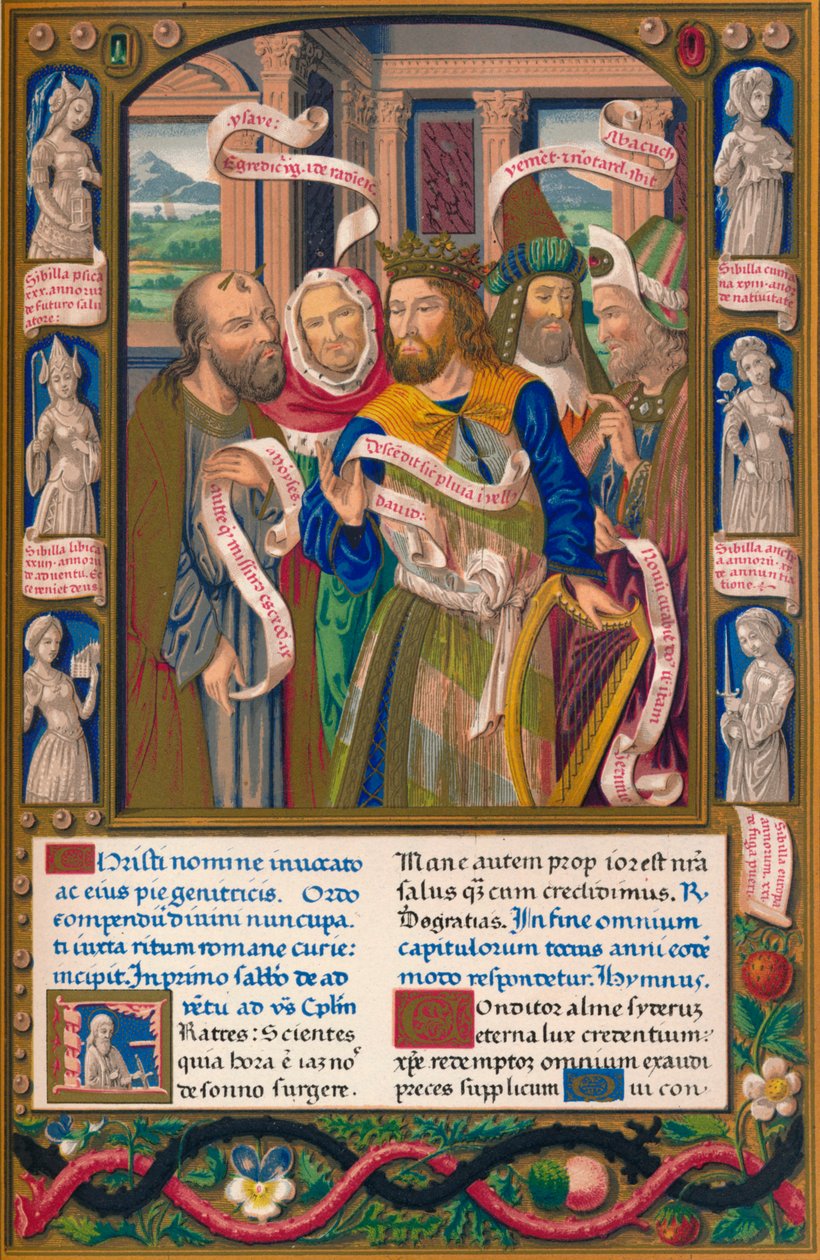 .ysaye:
Egredietᷣ Virga. de radice.
Abacuch
veniet. & non tard. ibit
Sibilla psica
xxx. annorum
de futuro salu
atore:
Sibilla cuma
na xviii. anor
de nativitate
Moyses.
David:
Descēdit sic pluvia i vell
Sibilla libica
xxiiii. annorū
de adventu. Ec
ce veniet deus.
de annuntia
tione.
Sibilla europa
annorum. xxi.
de fuga pueri
CHristi nomine invocato
ac eius pie genitricis. Ordo
compendiū divini nuncupa.
ti iuxta ritum romane curie:
incipit. In primo sabbō de ad
vētu ad vs̄ Cplm̄
FRatres: Scientes
quia hora ē iaz nos
de somno surgere.
Mane autem propiorest nr̄a
salus qz cum credidimus. R.
Deogratias. In fine omnium
capitulorum totius anni eodē
modo respondetur. Hymnus.
COnditor alme syderuz
eterna lux credentium:
xp̄e redemptor omnium exaudi
preces supplicum Qui con